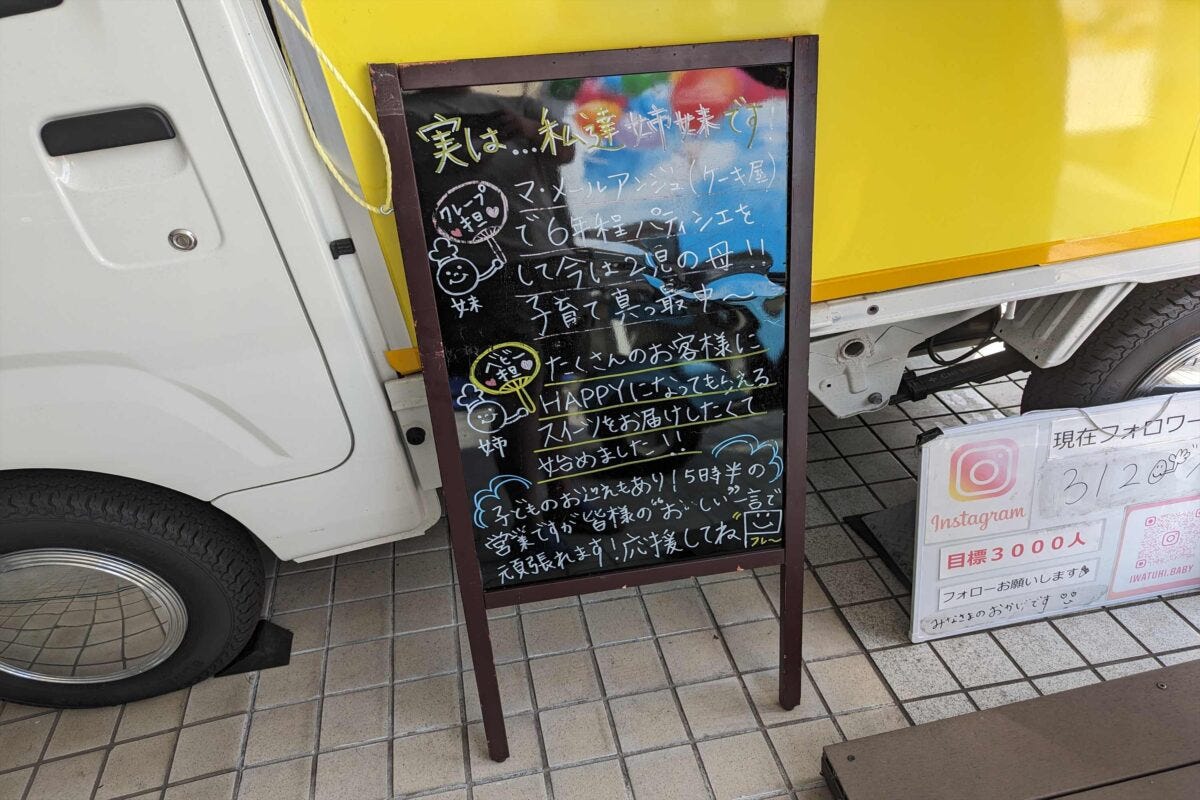 実は…私達姉妹です!
クレープ
担
妹
マ・メールアンジュ(ケーキ屋)
で6年程パティシエを
して今は2児の母!!
子育て真っ最中〜
ベビー
担
姉
たくさんのお客様に
HAPPYになってもらえる
スイーツをお届けしたくて
始めました!!
子どものお迎えもあり15時半の
営業ですが皆様の“おいしい”一言で
頑張れます!応援してね
フレ〜
現在フォロワー
312
Instagram
目標3000人
フォローお願いします
みなさまのおかげです
IWATUKI.BABY